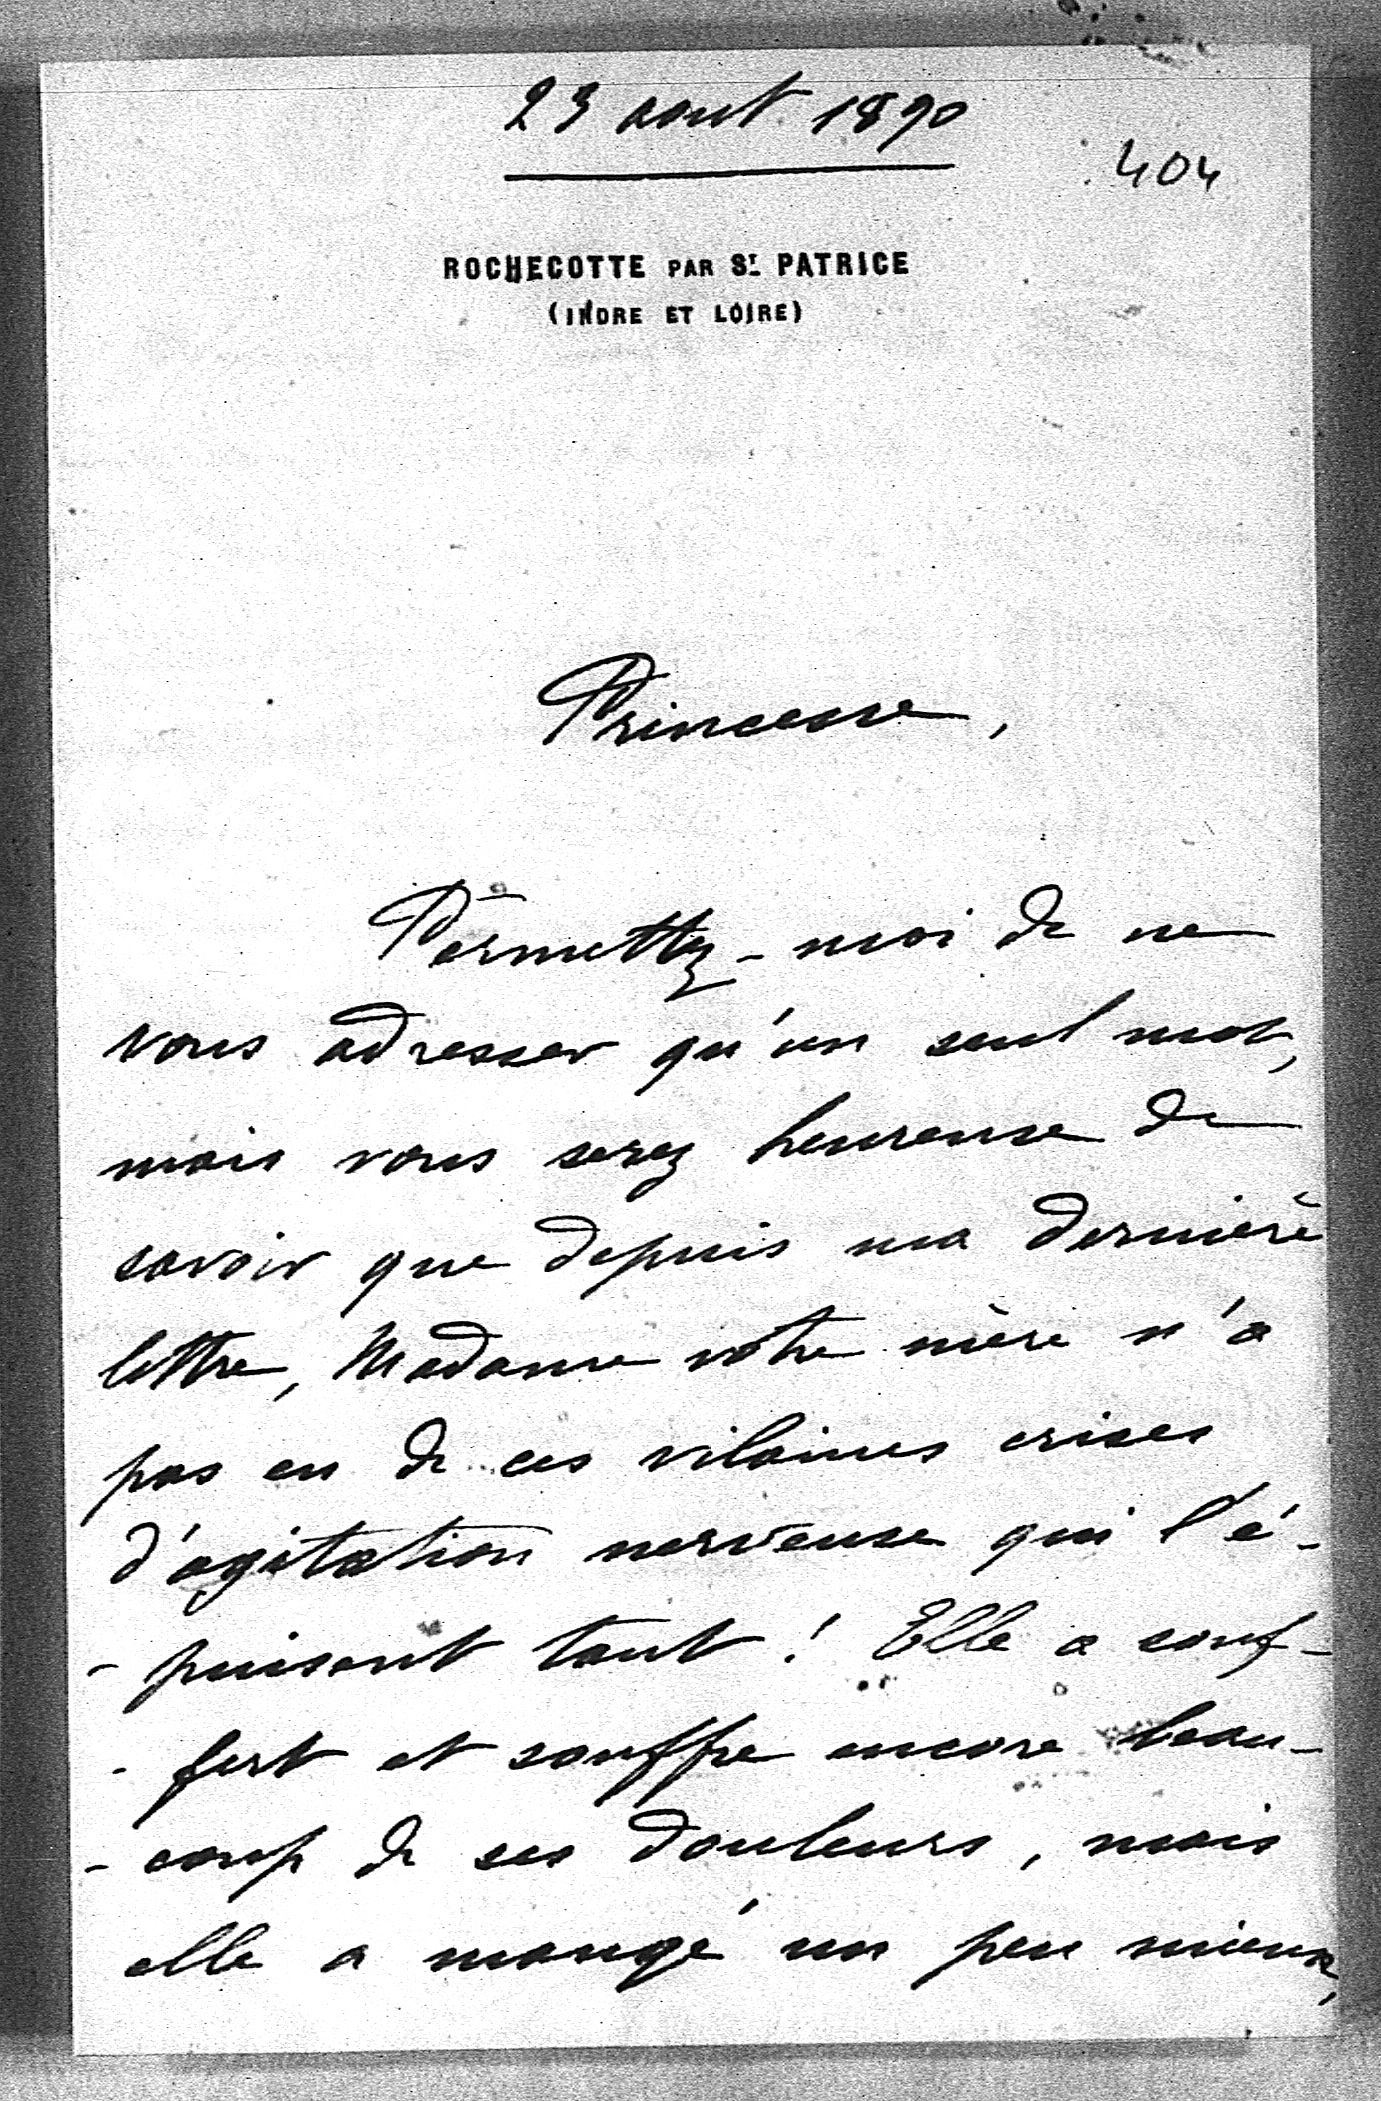 23 aout 1890
404
ROCHECOTTE PAR ST PATRICE
(INDRE ET LOIRE)
Princesse,
Permettez-moi de ne
vous adresser qu'un seul mot,
mais vous serez heureuse de
savoir que depuis ma dernière
lettre, Madame votre mère n'a
pas eu de ces vilaines crises
d'agitation nerveuse qui l'é-
-puisent tant ! Elle a souf-
-fert et souffre encore beau-
-coup de ses douleurs, mais
elle a mangé un peu mieux,